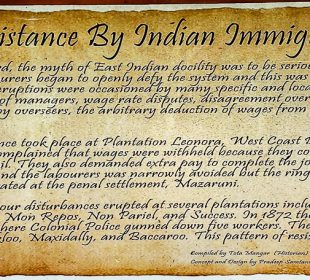 istance By Indian Immig
d, the myth of East Indian docility was to be serio
urers began to openly defy the system and this was
ruptions were occasioned by many specific and loca
of managers, wage rate disputes, disagreement over
by overseers, the arbitrary deduction of wages from
nce took place at Plantation Leonora, West Coast
omplained that wages were withheld because they co
il. They also demanded extra pay to complete the jo
and the labourers was narrowly avoided but the ring
ated at the penal settlement, Mazaruni.
our disturbances erupted at several plantations inclu
, Mon Repos, Non Pariel, and Success. In 1872 the
here Colonial Police gunned down five workers. The
loo, Maxidally, and Baccaroo. This pattern of resi
Compiled by Tota Mangar (Historian)
Concept and Design by Pradeep Samtani